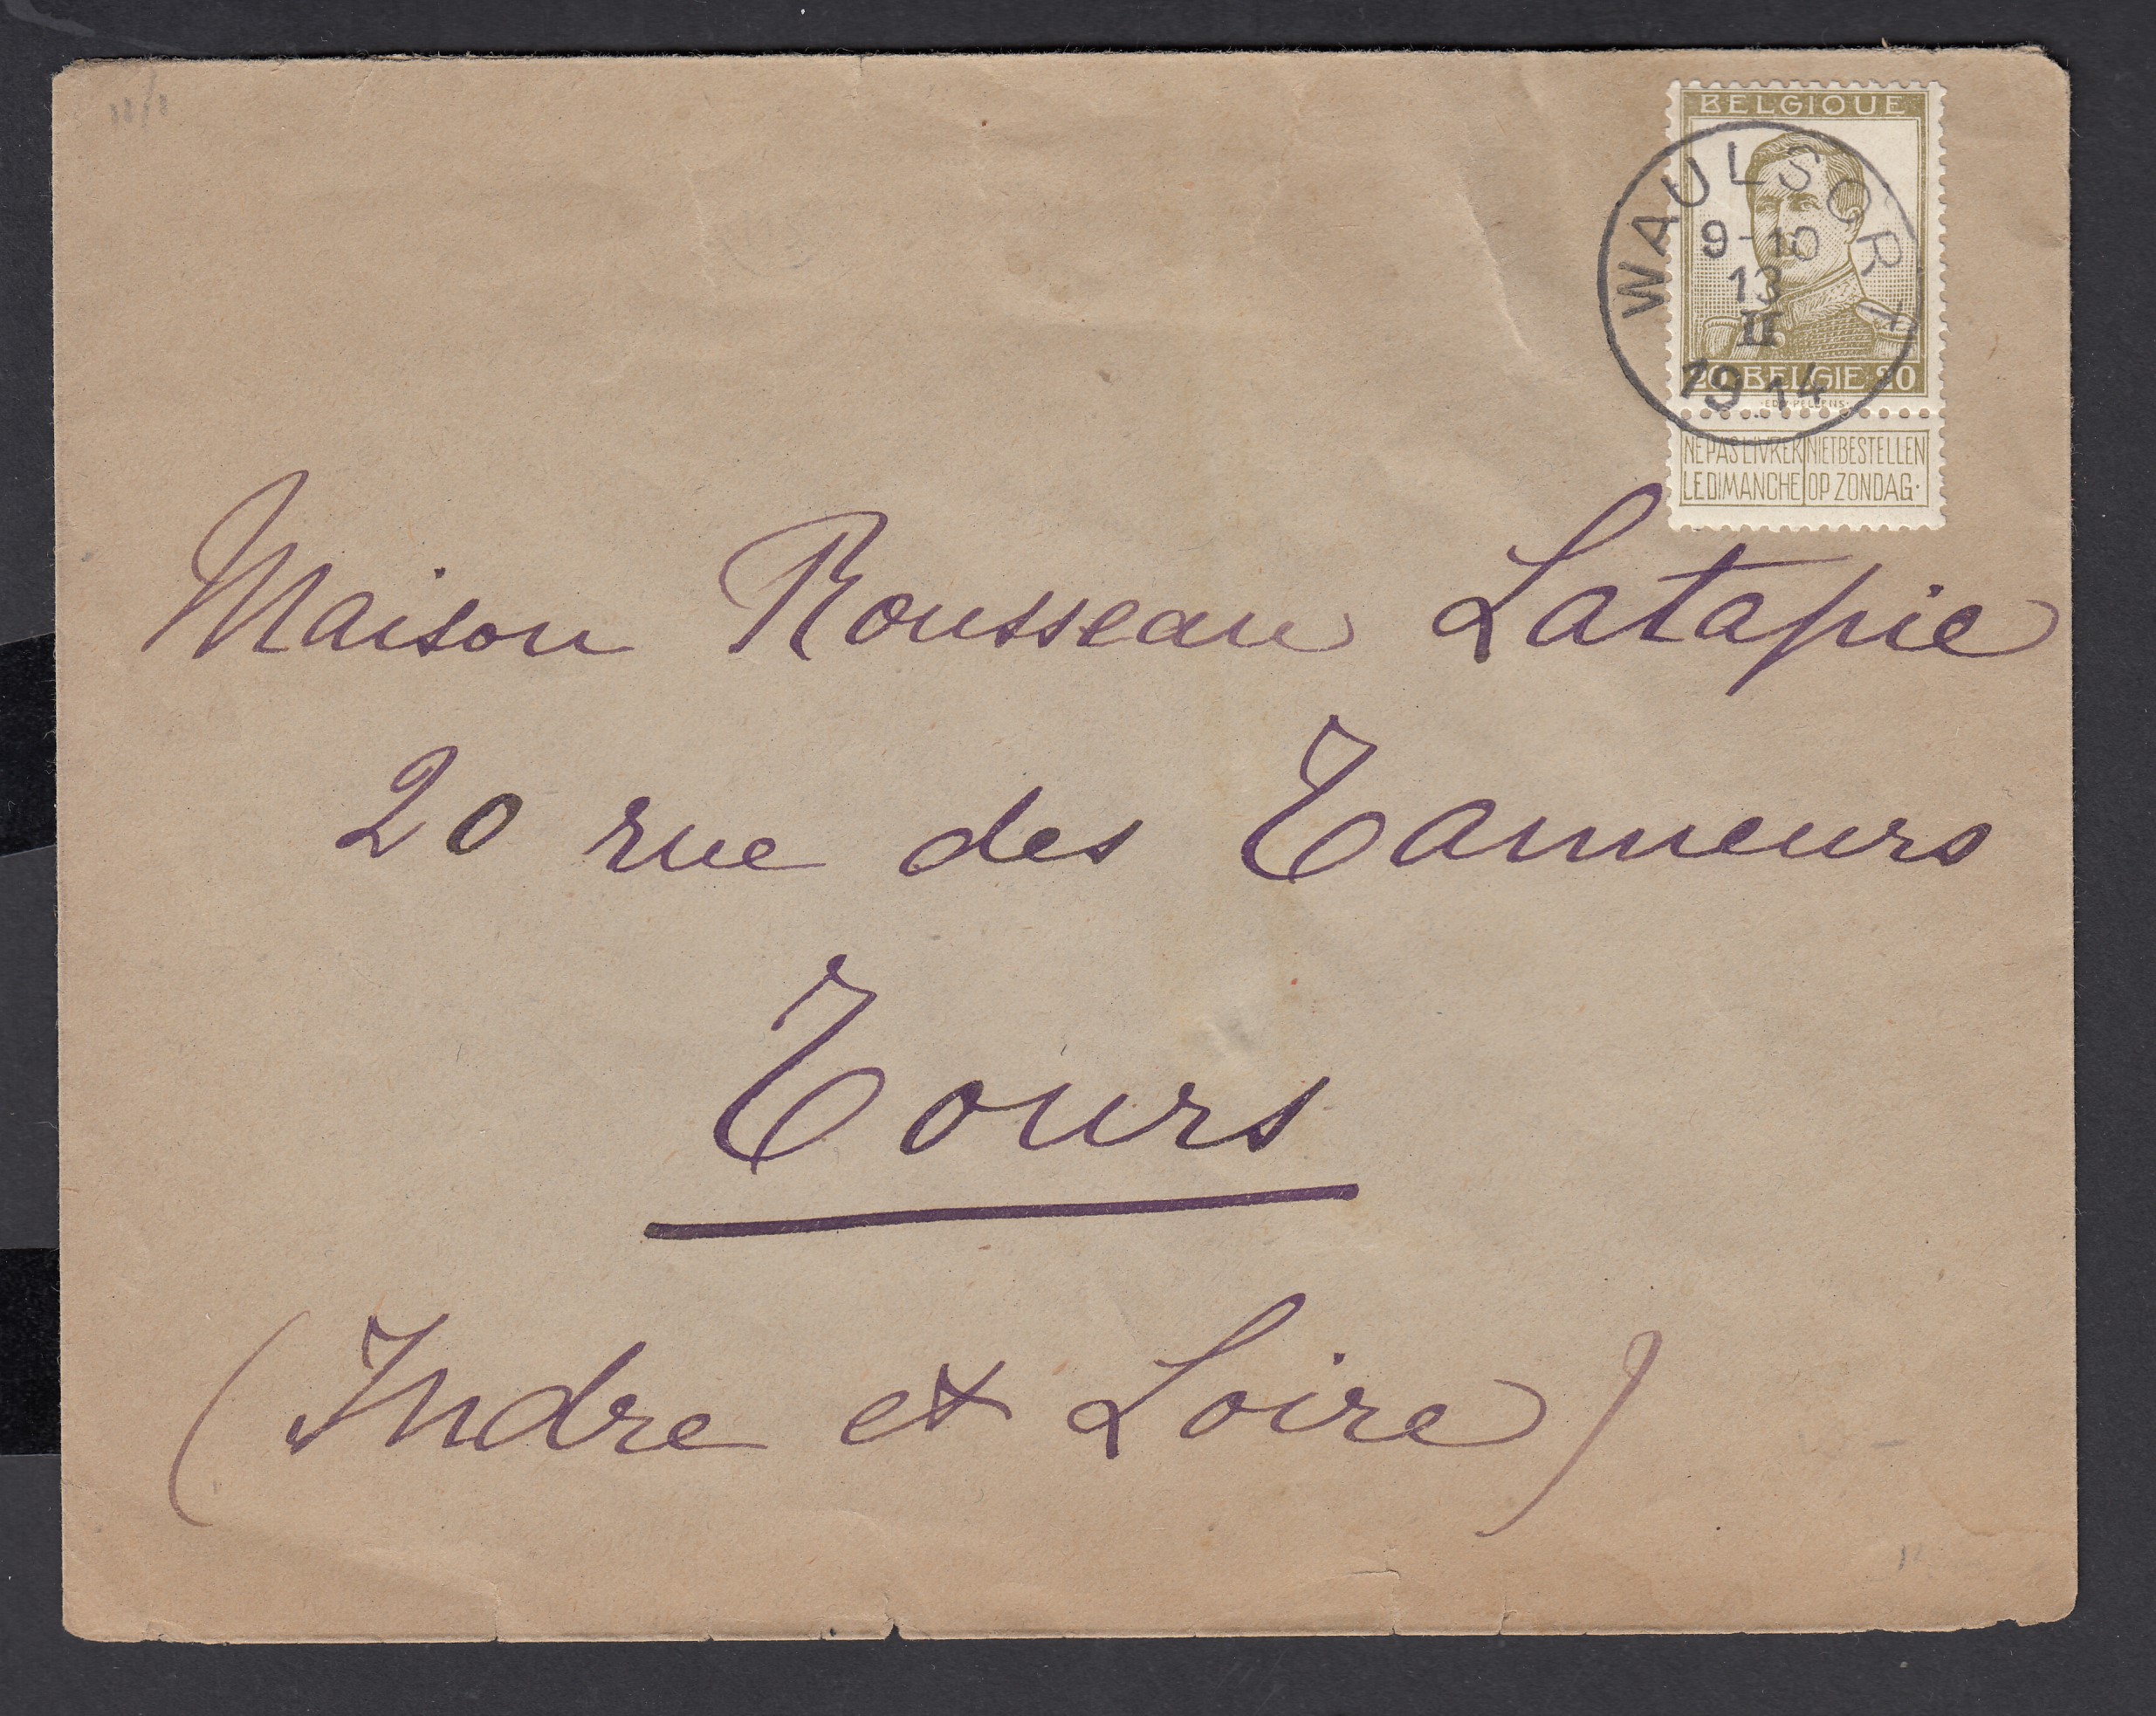 BELGIQUE
WAULSORT
9-10
13
II
1914
20 BELGIE 20
NE PAS LIVRER NIET BESTELLEN
LE DIMANCHE OP ZONDAG.
Maison Rousseau Latapie
20 rue des Tanneurs
Tours
(Indre et Loire)